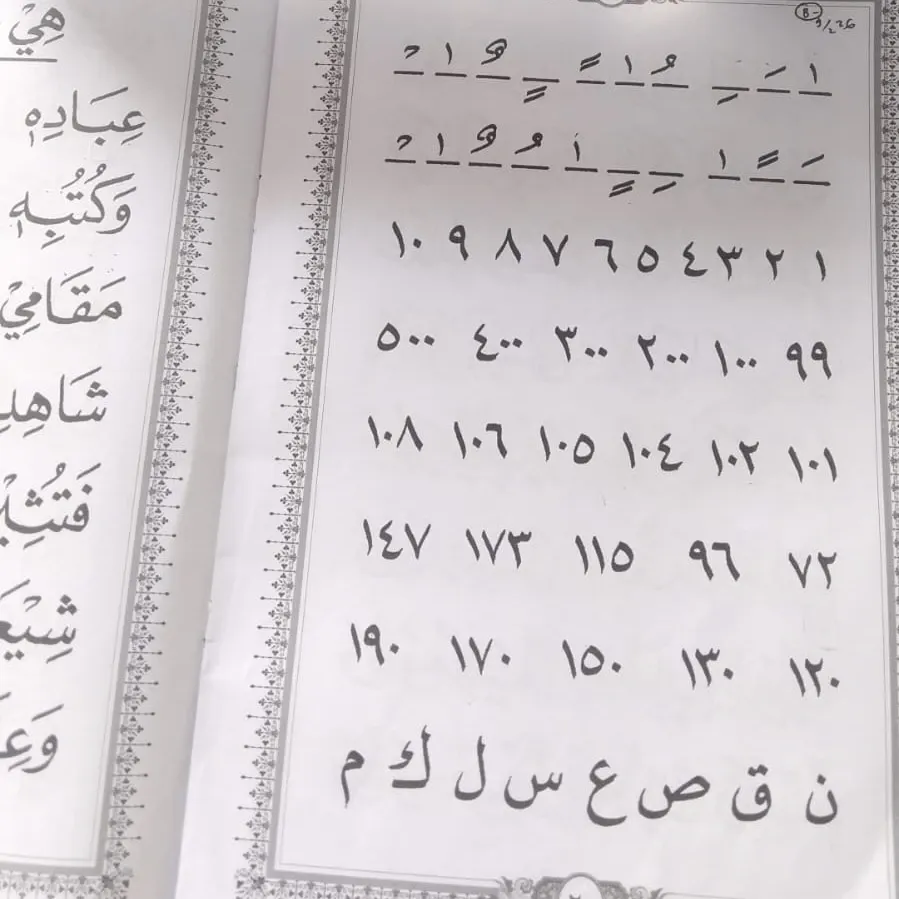 B-
9/2 26
١ ٢ ٣ ٤ ٥ ٦ ٧ ٨ ٩ ١٠
٩٩ ١٠٠ ٢٠٠ ٣٠٠ ٤٠٠ ٥٠٠
١٠١ ١٠٢ ١٠٤ ١٠٥ ١٠٦ ١٠٨
٧٢ ٩٦ ١١٥ ١٧٣ ١٤٧
١٢٠ ١٣٠ ١٥٠ ١٧٠ ١٩٠
ن ق ص ع س ل ك م
هِيْ
عِبَادِهٖ
وَكُتُبِهٖ
مَقَامِيْ